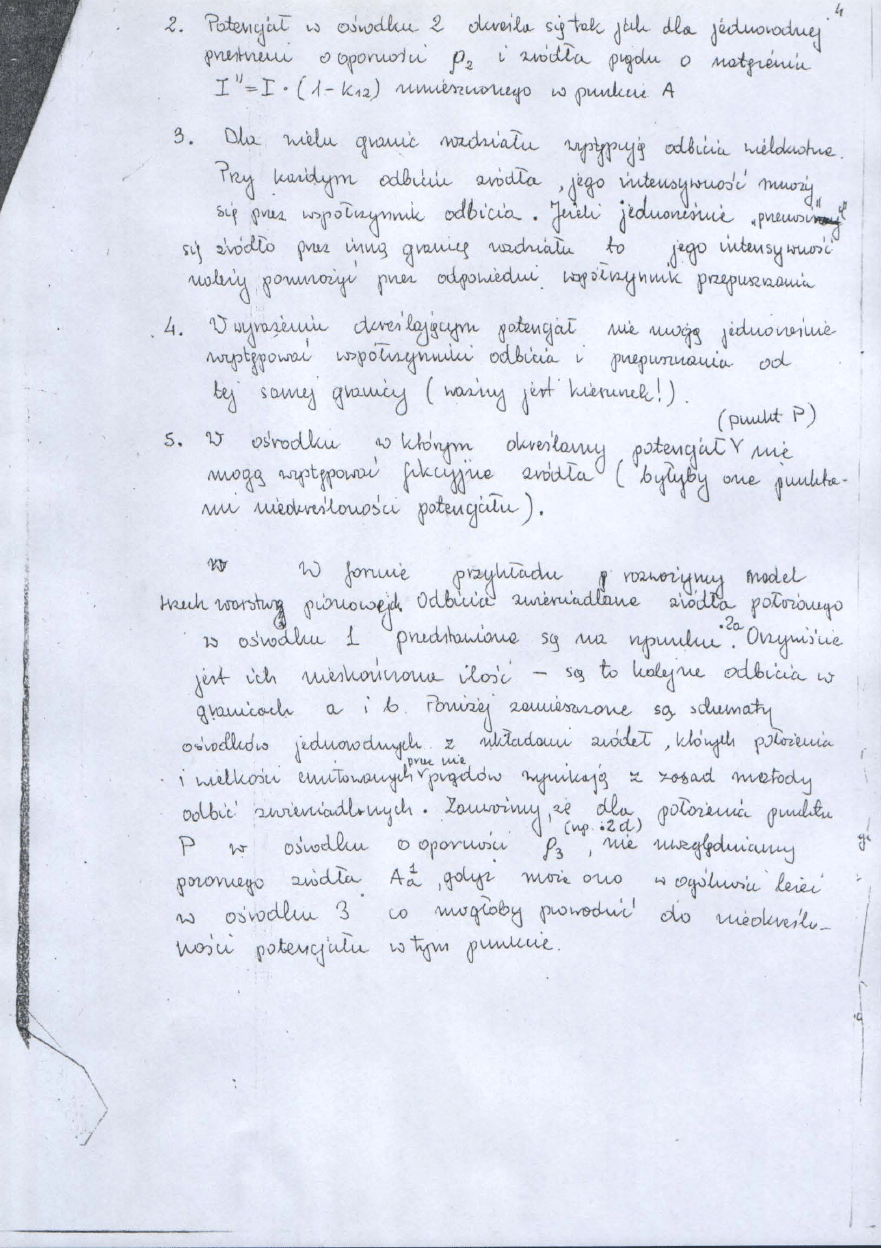 4
2. Potencjał w ośrodku 2 określa się tak jak dla jednorodnej
przestrzeni o oporności ρ₂ i źródła prądu o natężeniu
I" = I · (1 - k₁₂) umieszczonego w punkcie A
3. Dla wielu granic rozdziału występują odbicia wielokrotne.
Przy każdym odbiciu źródła, jego intensywność mnoży
się przez współczynnik odbicia. Jeżeli jednocześnie „przenosimy"
się źródło przez inną granicę rozdziału to jego intensywność
należy pomnożyć przez odpowiedni współczynnik przepuszczania
4. W wyrażeniu określającym potencjał nie mogą jednocześnie
występować współczynniki odbicia i przepuszczania od
tej samej granicy (ważny jest kierunek!).
5. W ośrodku w którym określamy potencjał (punkt P) nie
mogą występować fikcyjne źródła (byłyby one punkta-
mi nieokreśloności potencjału).
W formie przykładu rozważymy model
trzech warstw pionowych. Odbicia zwierciadlane źródła położonego
w ośrodku 1 przedstawione są na rysunku 2a. Oczywiście
jest ich nieskończona ilość – są to kolejne odbicia w
granicach a i b. Poniżej zamieszczone są schematy
ośrodków jednorodnych z układami źródeł, których położenia
i wielkości emitowanych przez nie prądów wynikają z zasad metody
odbić zwierciadlanych. Zauważmy, że dla położenia punktu
P w ośrodku o oporności ρ₃ (np. 2d), nie uwzględniamy
pozornego źródła A¹ₐ, gdyż może ono w ogólności leżeć
w ośrodku 3 co mogłoby prowadzić do nieokreślo-
ności potencjału w tym punkcie.